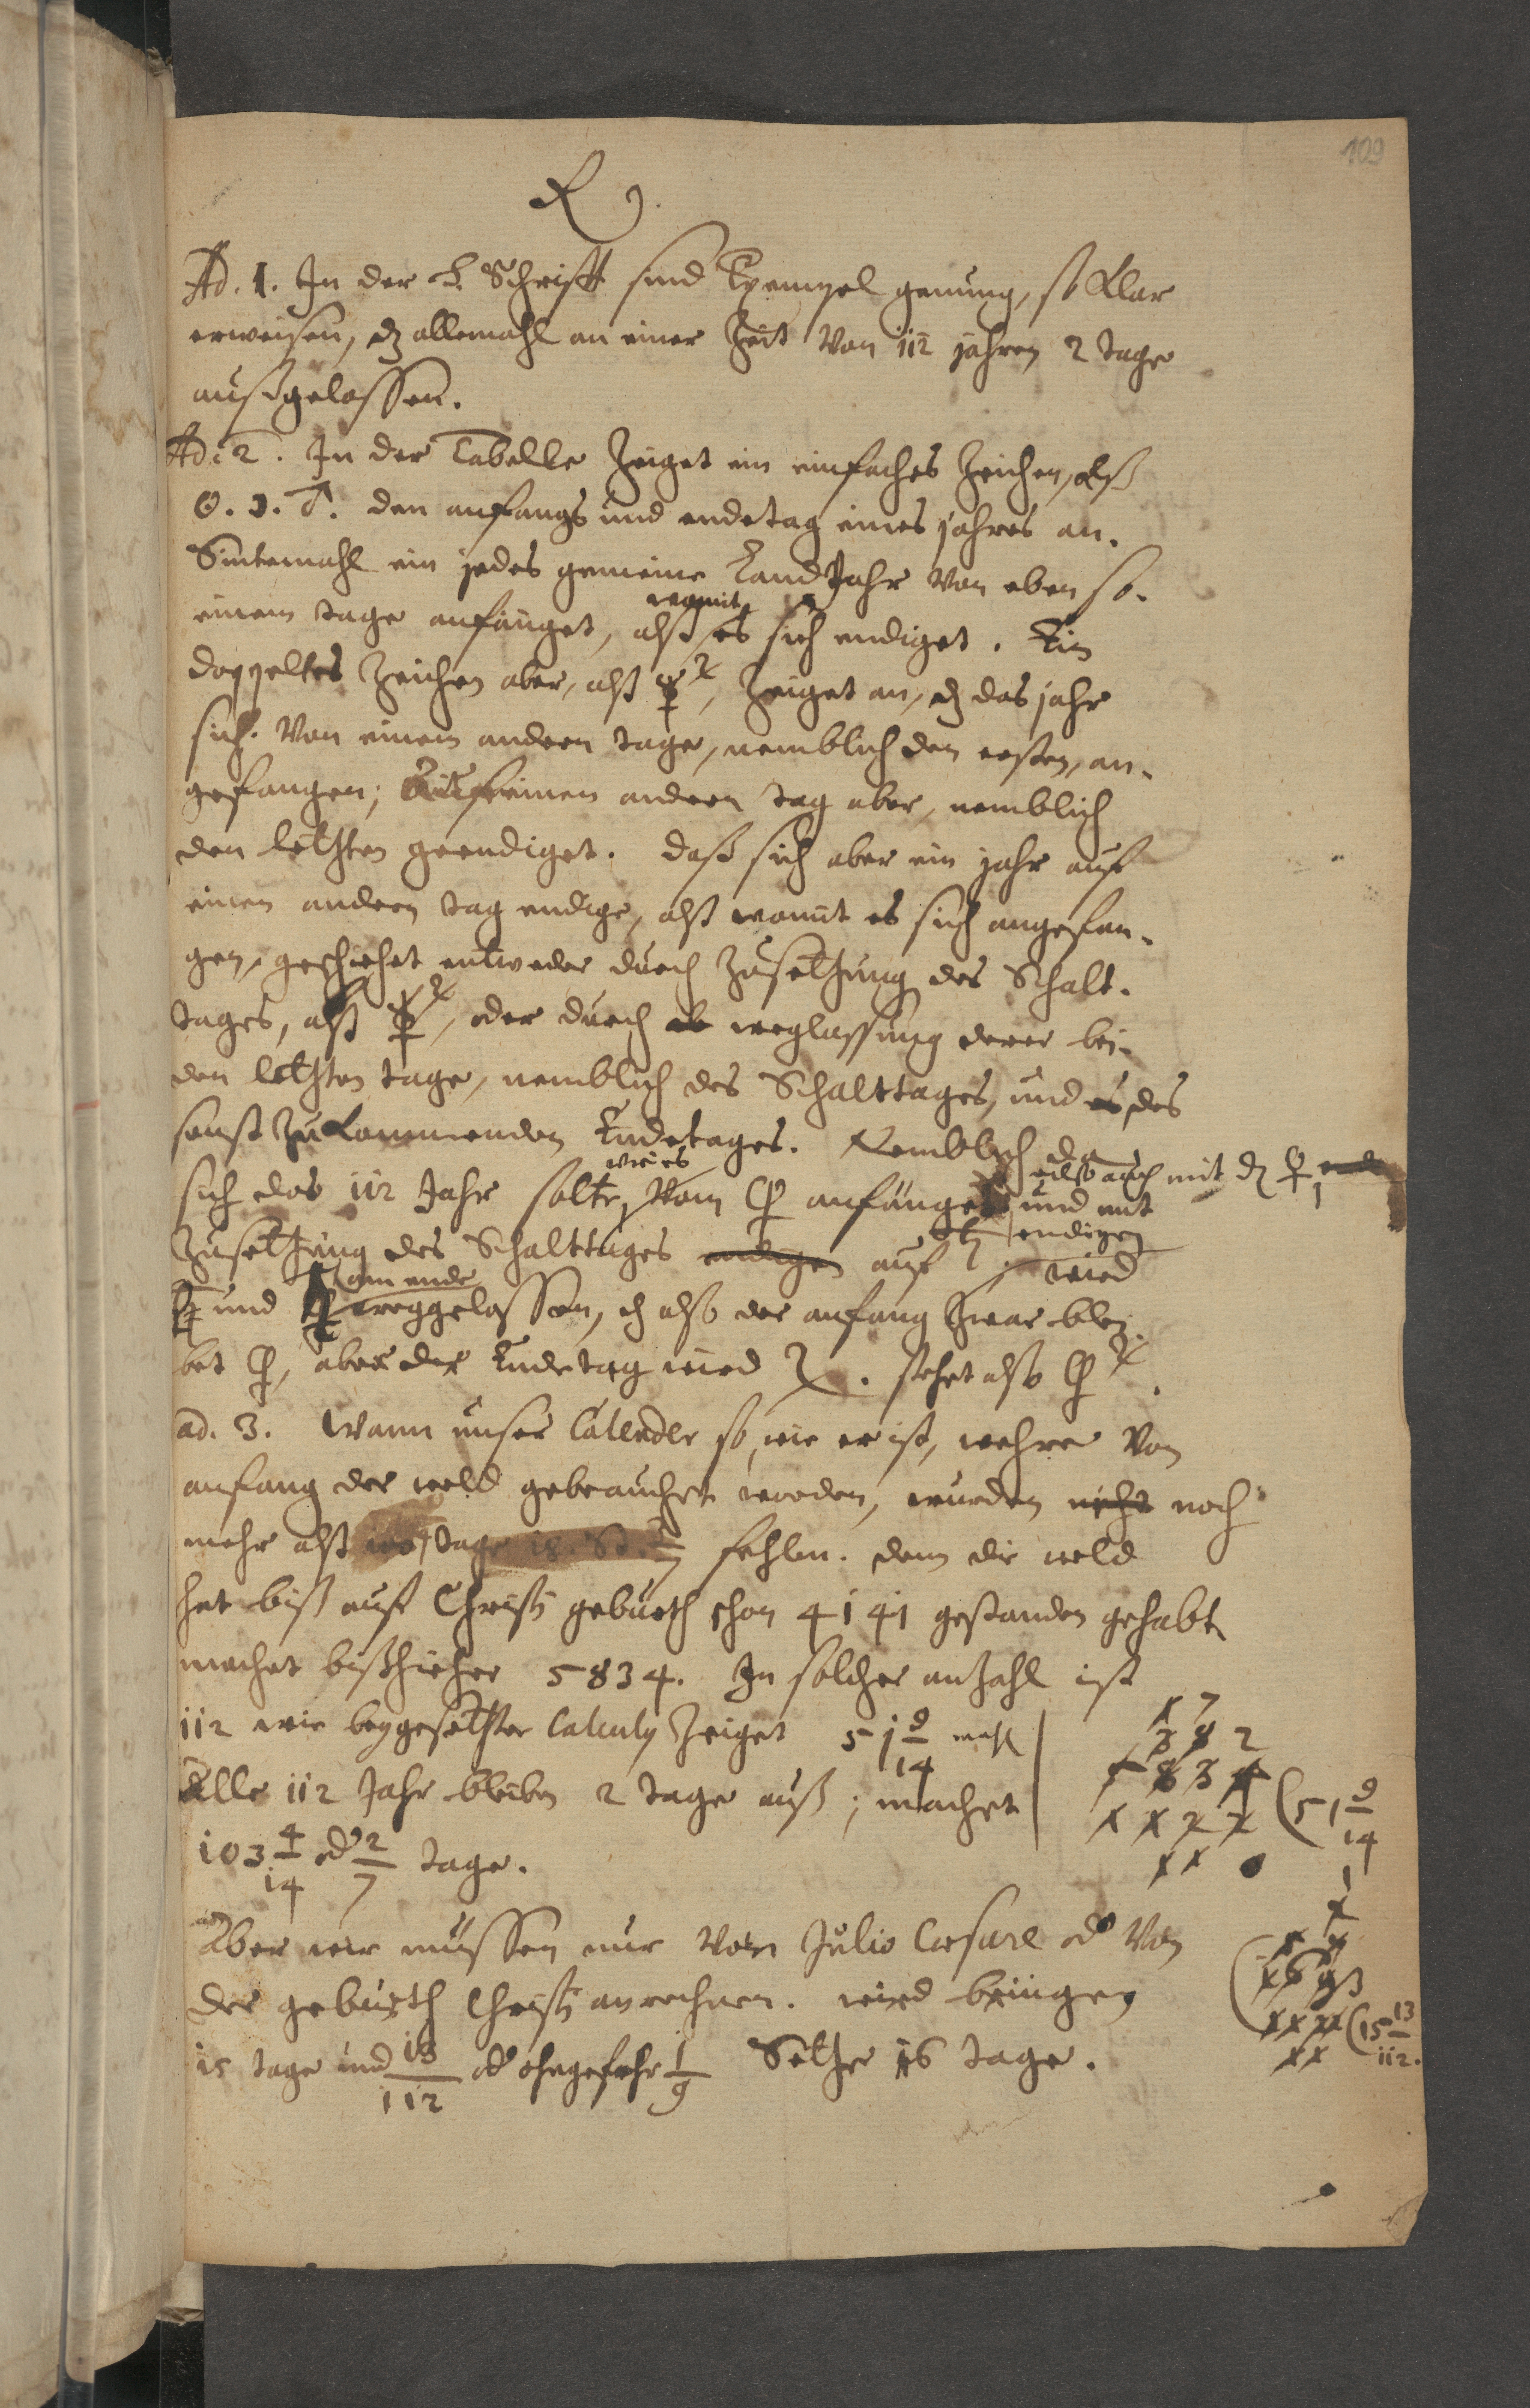 109
R.
Ad. 1. In der H. Schrifft sind Exempel genung, so klar
erweisen, dz allemahl an einer Zeit von 112 jahren 2 tage
außgelassen.
Ad. 2. In der Tabelle zeiget ein einfaches Zeichen, alß
☉. ☽. ♂. den anfangs und endetag eines jahres an.
Sintemahl ein jedes gemeine Land Jahr von eben so
einem tage anfänget, alß womit es sich endiget. Ein
doppeltes Zeichen aber, alß ☿ ♃, zeiget an, dz das jahr
sich von einem andern tage, nemblich den ersten, an-
gefangen; Auf einen andern tag aber, nemblich
den letzten geendiget. Daß sich aber ein jahr auf
einen andern tag endige, alß womit es sich angefan-
gen, geschiehet entweder durch Zusetzung des Schalt-
tages, alß ☿ ♃, oder durch weglassung derer bei-
den letzten tage, nemblich des Schalttages, und des
sonst zukommenden Endetages. Nemblich da
sich das 112 Jahr solte, wie es vom ♀ anfänget also auch mit dz ♀ und mit
Zusetzung des Schalttages endigen auf ♄ endigen; wird
♄ und ♀ am ende weggelassen, dz also der anfang zwar blei-
bet ♀, aber der Endetag wird ♃. stehet also ♀ ♃.
ad. 3. Wann unser Calender so, wie er ist, wehre von
anfang der weld gebrauchet worden, wurden nicht noch
mehr alß tage fehlen. denn die weld
hat biß auf Christi geburth schon 4141 gestanden gehabt
machet bißhieher 5834. In solcher anzahl ist
112 wie beygesetzter Calculus zeiget 51 9/14 mahl
Alle 112 Jahr bleiben 2 tage auß; machet
103 4/14 od 2/7 tage.
5834 (51 9/14
Aber wir müssen nur von Julio Cæsare od von
der geburth Christi anrechnen. wird bringen
15 tage und 13/112 od ohngefehr 1/9 Setze 16 tage.
1693 (15 13/112.